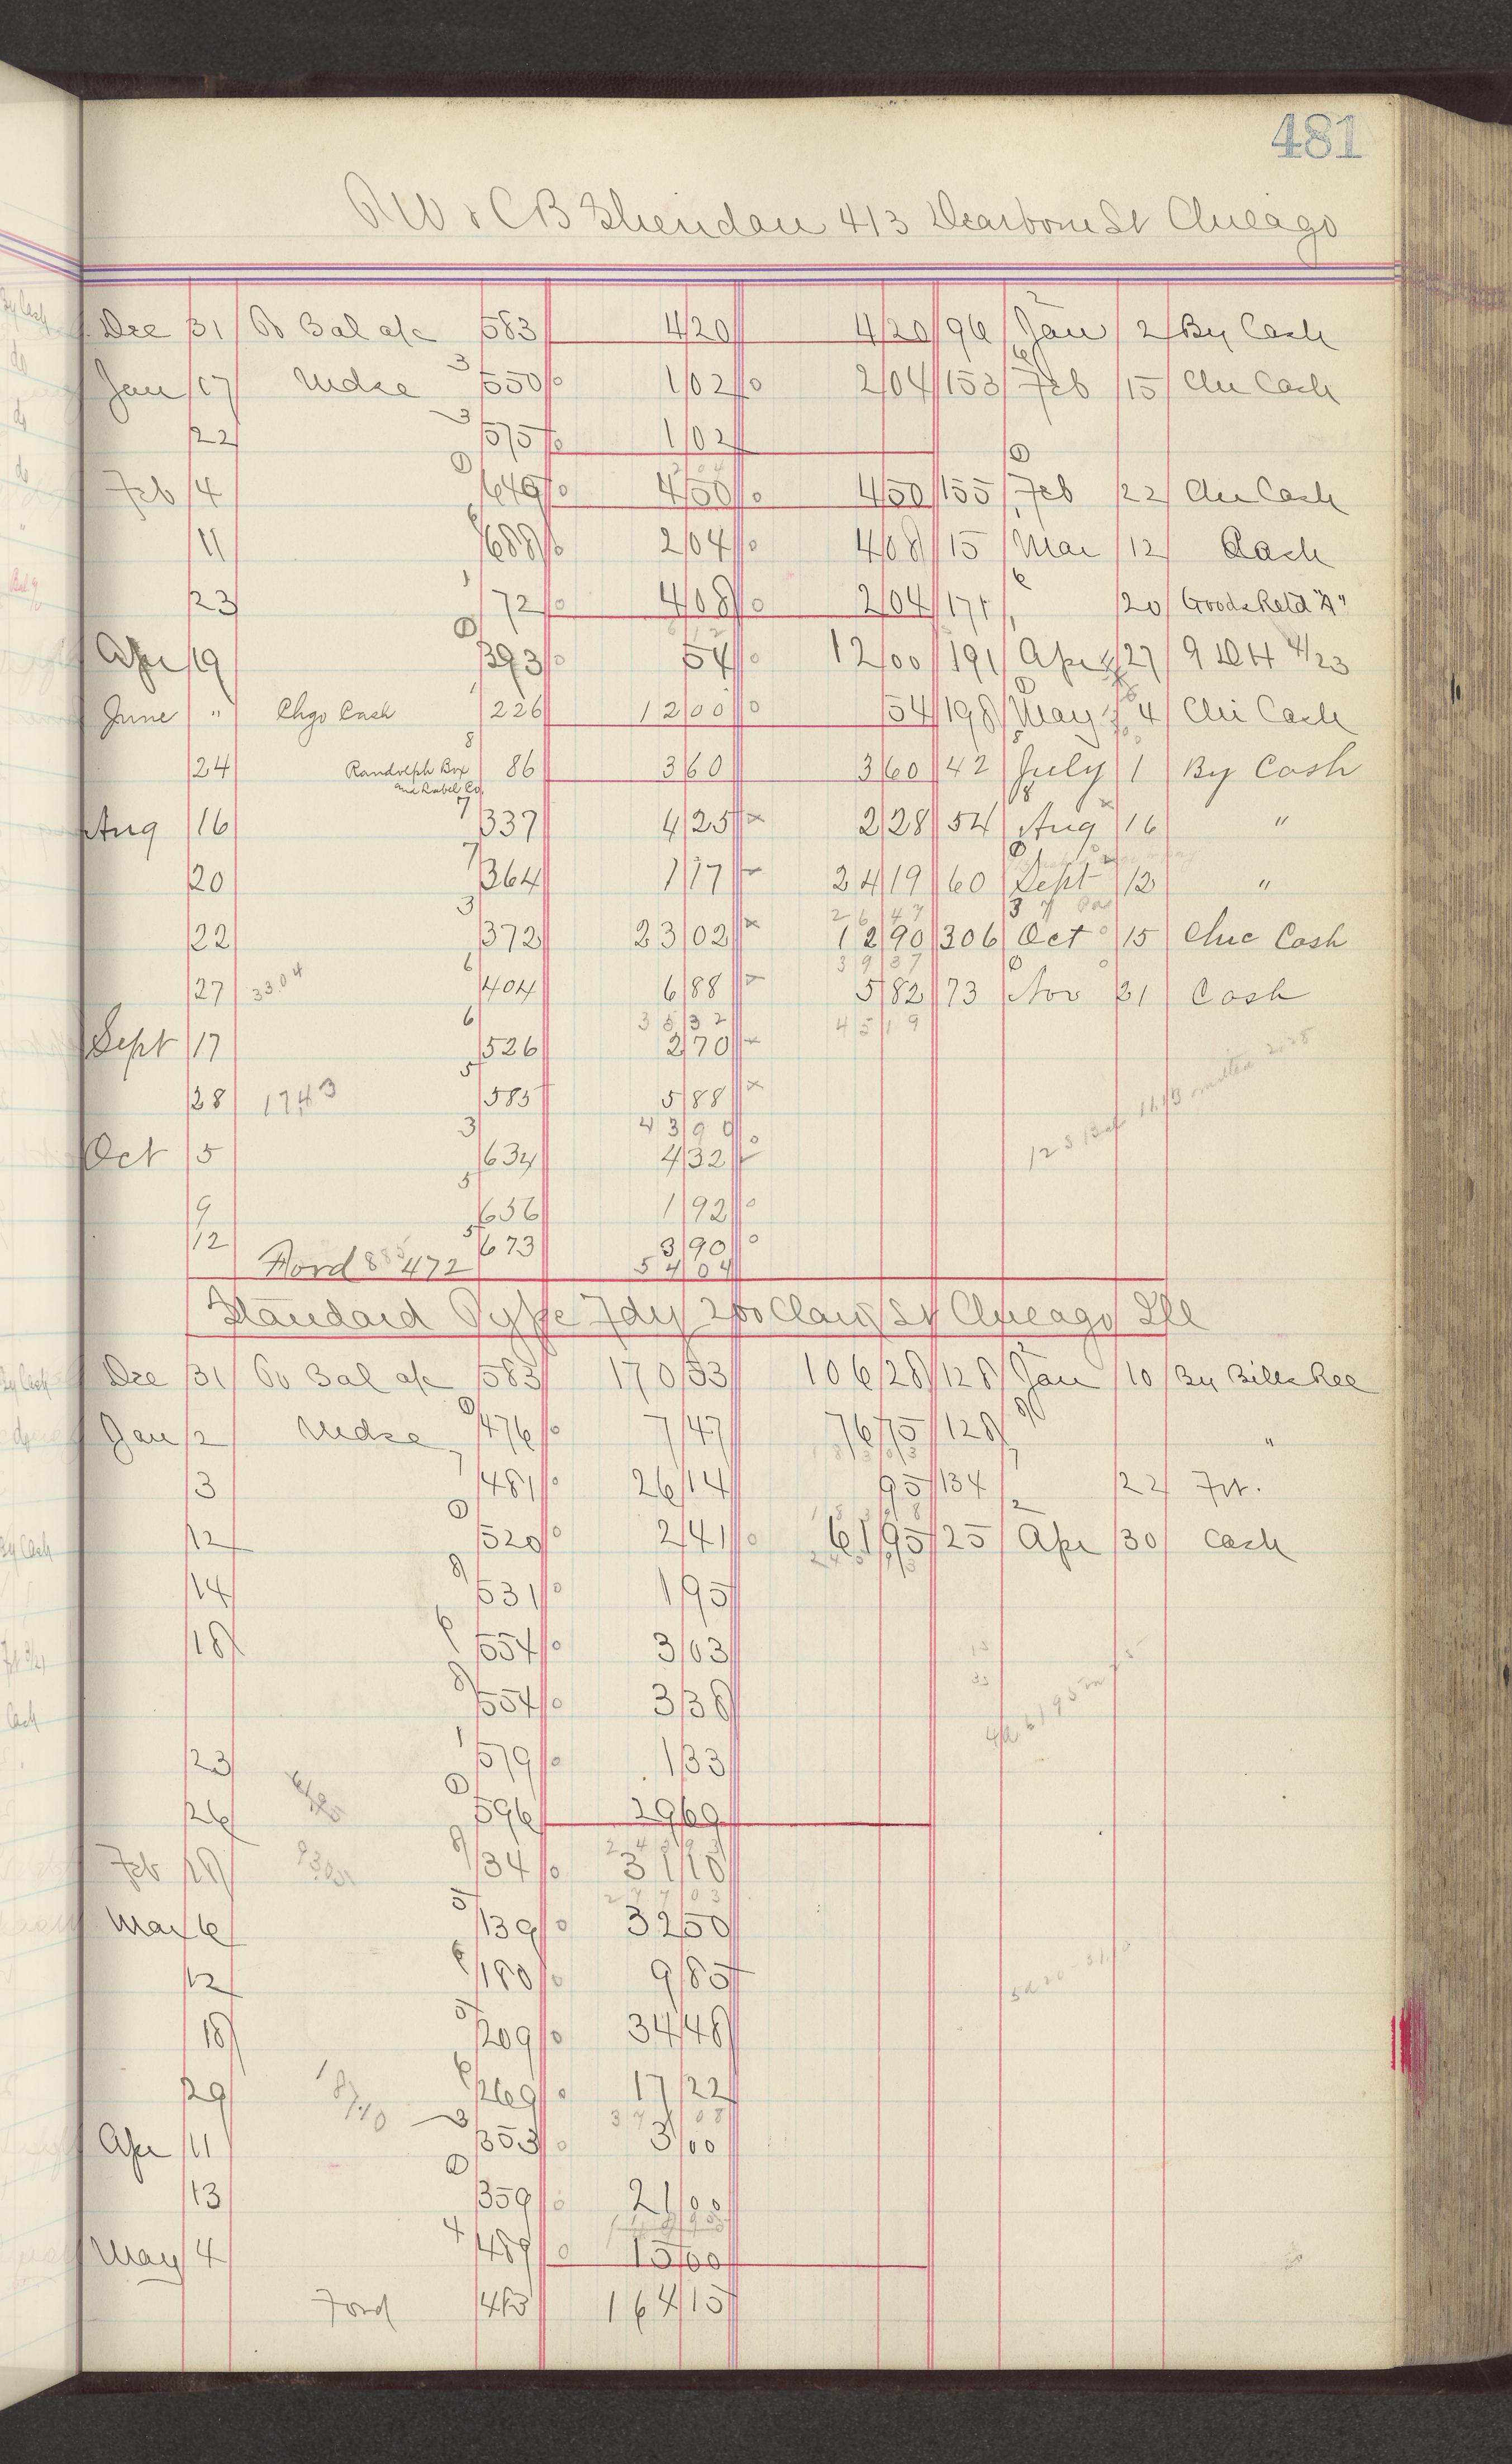 481
RW & CB Sheridan 413 Dearborn St Chicago
Dec 31 To Bal a/c 583 4 20 4 20 96 Jan 2 By Cash
Jan 17 Mdse 3 550 1 02 2 04 153 Feb 15 Chi Cash
22 3 575 1 02
Feb 4 649 4 50 4 50 155 Feb 22 Chi Cash
11 6 688 2 04 4 08 15 Mar 12 Cash
23 1 72 4 08 2 04 171 20 Goods Retd "A"
6 12
Apr 19 393 54 12 00 191 Apr 27 9 DH 4/23
June " Chgo Cash 1 226 12 00 54 198 May 4 Chi Cash
24 Randolph Box and Label Co. 8 86 3 60 3 60 42 July 1 By Cash
Aug 16 7 337 4 25 2 28 54 Aug 16 "
20 7 364 1 17 24 19 60 Sept 12 "
26 47
22 3 372 23 02 12 90 306 Oct 15 Chic Cash
39 37
27 33.04 6 404 6 88 5 82 73 Nov 21 Cash
35 32 45 19
Sept 17 6 526 2 70
28 1743 5 585 5 88
43 90
Oct 5 3 634 4 32
9 5 656 1 92
12 5 673 3 90
Ford 885 472 54 04
Standard Type Fdy 200 Clark St Chicago Ill
Dec 31 To Bal a/c 583 170 53 106 28 128 Jan 10 By Bills Rec
Jan 2 Mdse 476 7 47 76 75 128 "
183 03
3 7 481 26 14 95 134 22 Frt.
12 520 2 41 61 95 25 Apr 30 Cash
245 93
14 8 531 1 95
18 6 554 3 03
8 554 3 38
23 1 579 1 33
26 596 29 69
245 93
Feb 28 8 34 31 10
277 03
Mar 6 5 139 32 50
12 6 180 9 85
18 5 209 34 48
29 6 269 17 22
371 08
Apr 11 3 353 3 00
13 359 21 00
May 4 4 489 15 00
Ford 483 164 15